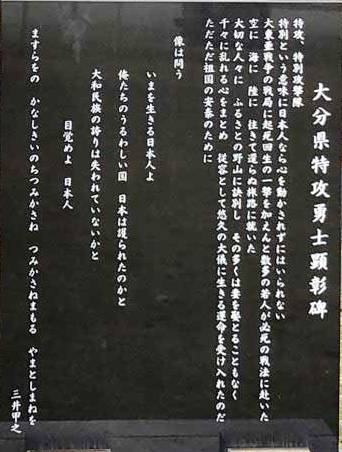 大分県特攻勇士顕彰碑
特攻、特別攻撃隊
特別という意味に日本人なら心を動かされずにはいられない
大東亜戦争の戦局に起死回生の一撃を加えんと数多の若人が必死の戦法に赴いた
空に 海に 陸に 往きて還らぬ旅路に就いた
大切な人々に ふるさとの野山に訣別し その多くは妻を娶とることもなく
千々に乱れる心をまとめ 従容として悠久の大儀に生きる運命を受け入れたのだ
ただただ祖国の安泰のために
像は問う
いまを生きる日本人よ
俺たちのうるわしい国 日本は護られたのかと
大和民族の誇りは失われていないかと
目覚めよ 日本人
ますらをの かなしきいのちつみかさね つみかさねまもる やまとしまねを
三井甲之